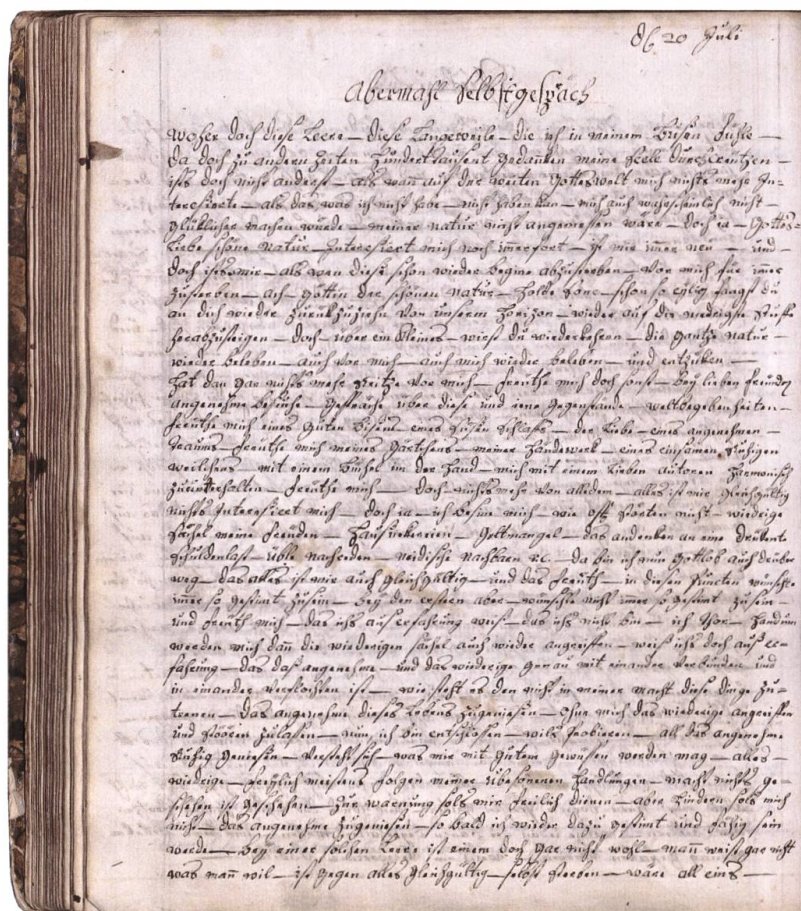 d 20 Juli
Abermahl Selbstgespräch
woher doch diese Leere — diese Langeweile — die ich in meinem Busen fühle —
da doch zu andern Zeiten hunderttausent gedanken meine Seele durchkreützen —
ists doch nicht anderst — als wan auf der weiten Gotteswelt mich nichts mehr In-
teressierte — als das was ich nicht habe — nicht haben kan — mich auch wahrscheinlich nicht —
glüklicher machen würde — meiner natur nicht angemessen wäre — doch ia — Gottes-
liebe schöne Natur — Interesiert mich noch imerfort — ist mir imer neü — und —
doch ists mir — als wan diese schon wieder begine abzusterben — vor mich für imer
zusterben — ach — göttin der schönen natur — holde Sone — schon so eylig fangst du
an dich wieder zurükzuziehn von unserm Horizon — wieder auf die niedrigste Stuffe
herabzusteigen — doch — über ein kleines — wirst du wiederkehren — die gantze natur —
wieder beleben — auch vor mich — auch mich wieder beleben — und entzüken —
hat dan gar nichts mehr Reitze vor mich — freüthe mich doch sonst — bey lieben freunden
angenehme besuche — gespräche über diese und iene gegenstände — weltbegebenheiten —
freüthe mich eines guten bisens eines süsen schlafs — der liebe — eines angenehmen —
traums — freüthe mich meines gärtchens — meiner handwerk — eines einsamen Ruhigen
weilchens — mit einem buch in der hand — mich mit einem lieben autoren harmonisch
zuünterhalten — freüthe mich — doch nichts mehr von alledem — alles ist mir gleichgültig
nichts Interesiert mich — doch ia — ich besine mich — wie oft störten nicht — wiedrige
sachen meine freüden — Hauskeiereien — geltmangel — das andenken an eine drükente
schuldenlast — üble nachreden — neidische nachbarn &c. da bin ich nun Gottlob auch drüber
weg — das alles ist mir auch gleichgültig — und das freüth — in diesen Puncten wünschte
imer so gestimt zusein — bey den erstern aber — wünschte nicht imer so gestimt zusein —
und freüth mich — das ichs aus erfahrung weis — das ichs nicht bin —
werden mich dan die wiederigen sachen auch wieder angreiffen — weis ichs doch aus er-
fahrung — das das angenehme — und das wiedrige genau mit einander verbunden und
in einander verflochten ist — wie steht es den nicht in meiner macht diese dinge zu-
trenen — das angenehme dieses Lebens zugeniesen — ohne mich das wiederige angreiffen
und stören zulassen — nun, ich bin entschlosen — wils probieren — all das angenehme
Ruhig geniesen — versteht sich — was mir mit gutem gewüssen werden mag — alles —
wiedrige — freilich meistens folgen meiner übesonenen Handlungen — macht nichts ge-
schehen ist geschehen — zur warnung sols mir freilich dienen — aber hindern sols mich
nicht — das angenehme zugeniesen — so bald ich wieder dazu gestimt und fähig sein
werde — bey einer solchen Leere ist einem doch gar nicht wohl — man weist gar nicht
was man wil — ist gegen alles gleichgültig — selbst sterben — wäre all eins —